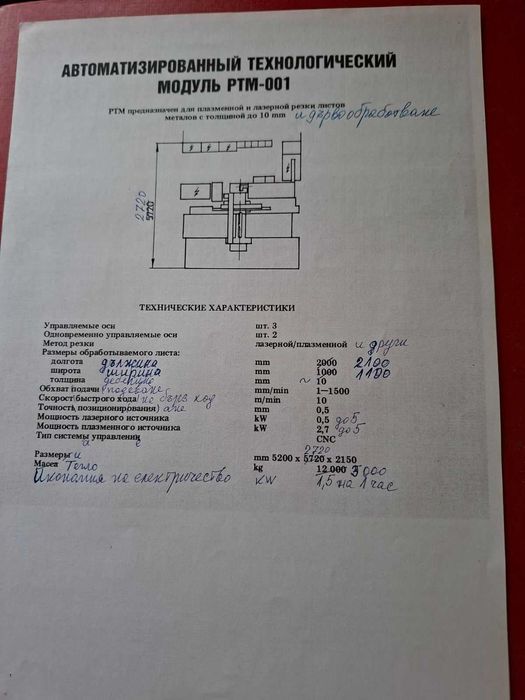 АВТОМАТИЗИРОВАННЫЙ ТЕХНОЛОГИЧЕСКИЙ
МОДУЛЬ РТМ-001
РТМ предназначен для плазменной и лазерной резки листов
металов с толщиной до 10 mm и дървообработване
2720
5720
ТЕХНИЧЕСКИЕ ХАРАКТЕРИСТИКИ
Управляемые оси шт. 3
Одновременно управляемые оси шт. 2
Метод резки лазерной/плазменной и други
Размеры обработываемого листа:
долгота дължина mm 2000 2100
широта ширина mm 1000 1100
толщина дебелина mm ~ 10
Обхват подачи подаване mm/min 1—1500
Скорост быстрого хода на бърз ход m/min 10
Точность позиционирования mm 0,5
Мощность лазерного источника kW 0,5 до 5
Мощность плазменного источника kW 2,7 до 5
Тип системы управлений CNC
2720
Размеры и mm 5200 x 5720 x 2150
Масса Тегло kg 12 000 3000
Икономия на електричество KW 1,5 на 1 час